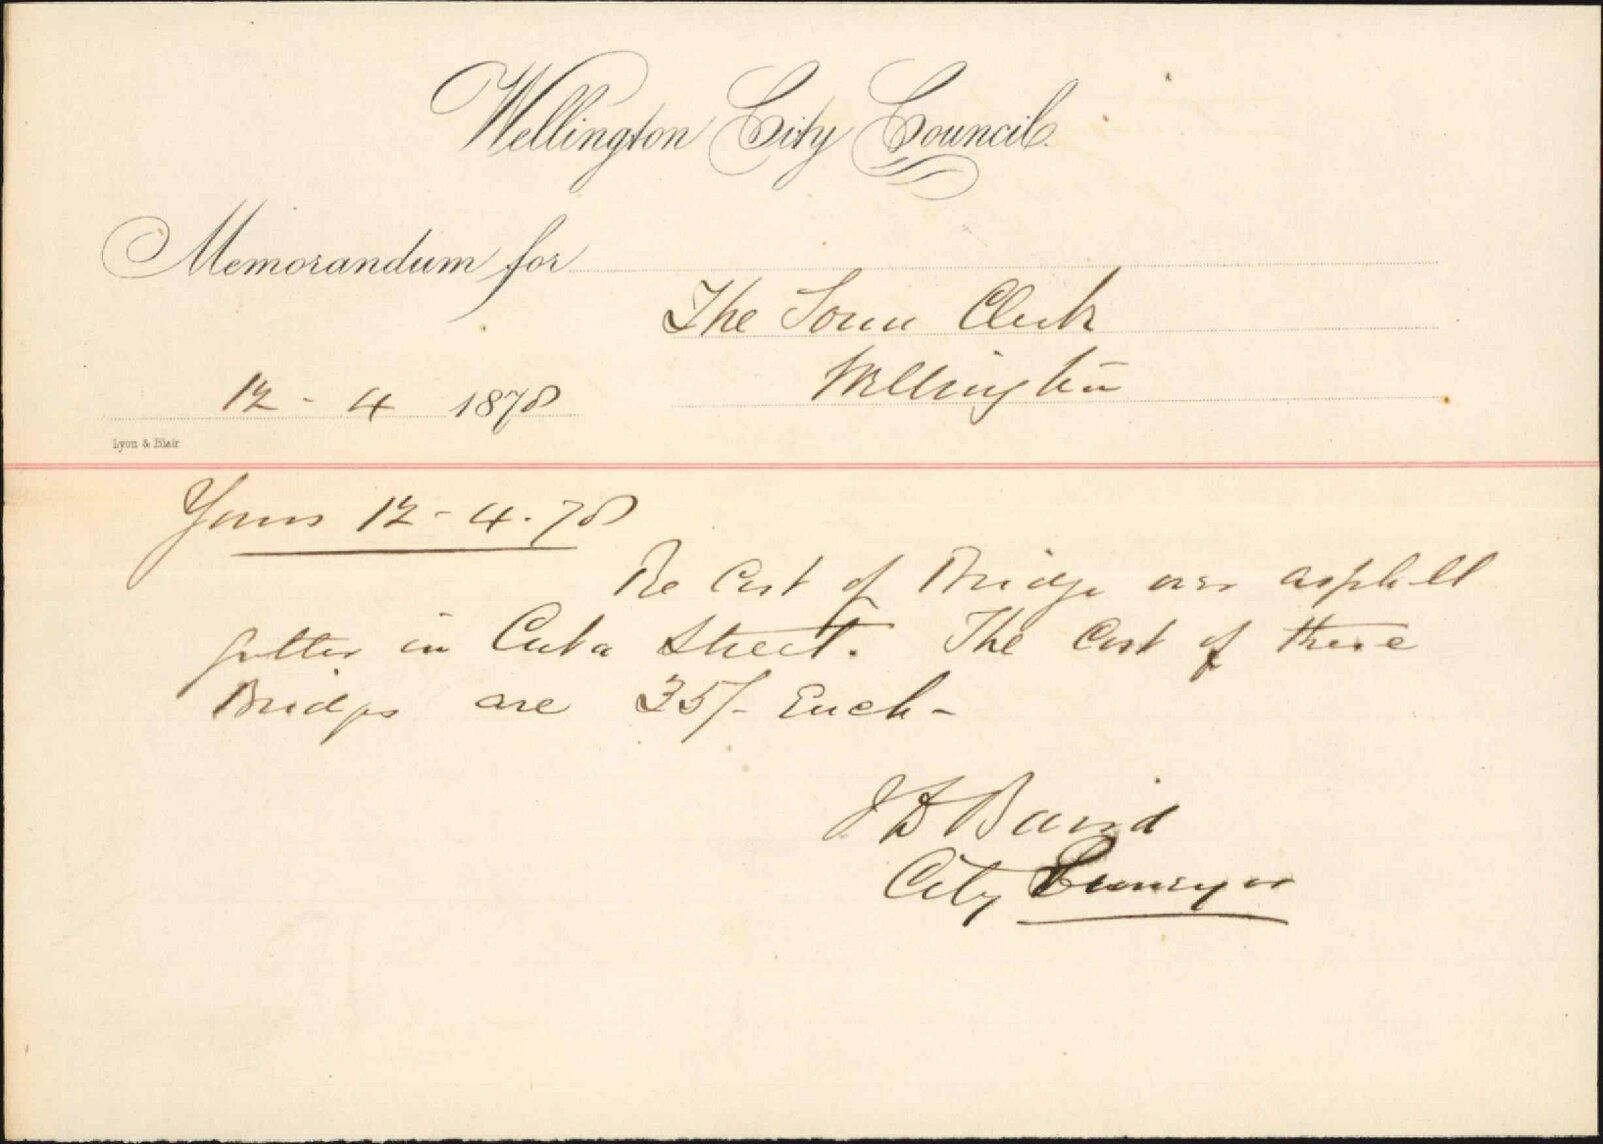 Wellington City Council.
Memorandum for
The Town Clerk
Wellington
12 - 4 1878
Lyon & Blair
Yours 12 - 4 . 78
Re Cost of Bridge over asphalt
gutter in Cuba Street. The Cost of these
Bridges are 35/- Each -
J D Baird
City Surveyor